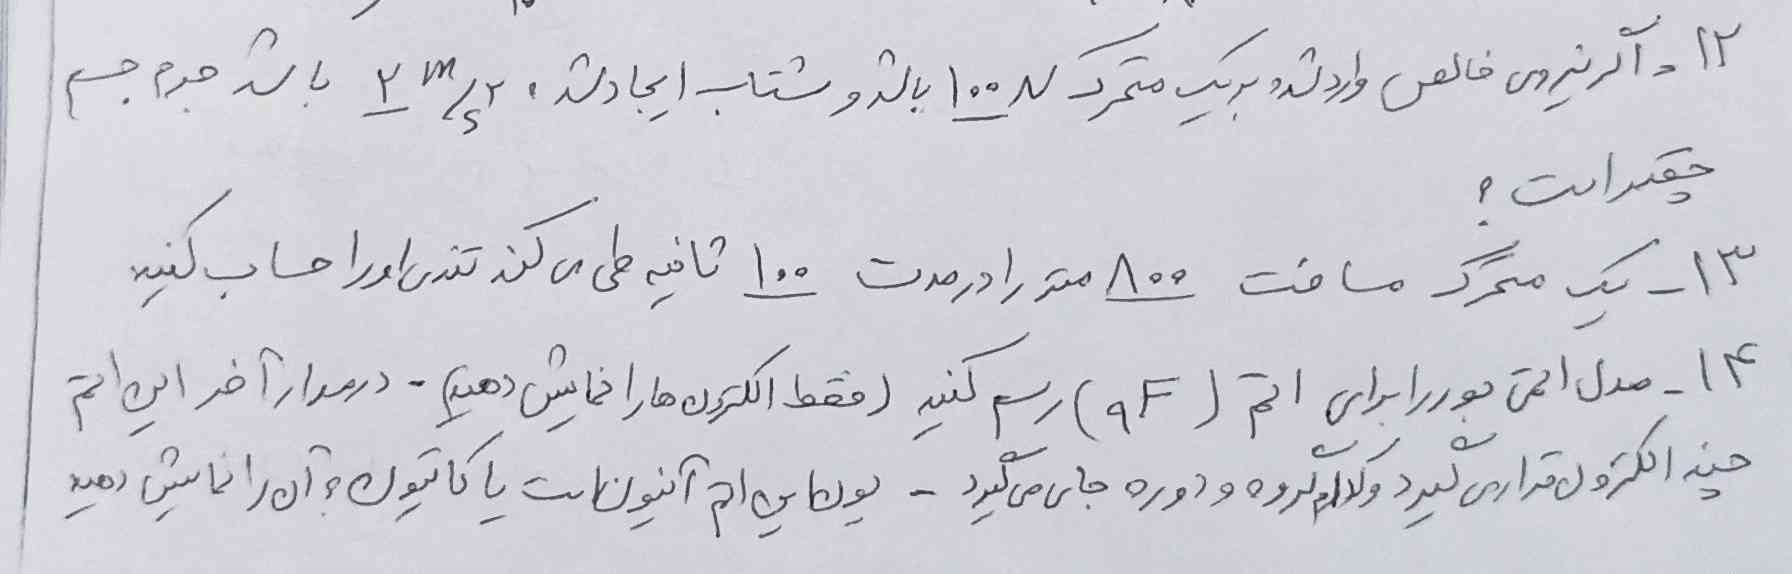 ۱۲ - اگر نیروی خالص وارد شده بر یک متحرک ۱۰۰ N باشد و شتاب ایجاد شده ۲ m/s۲ باشد جرم جسم
چقدر است؟
۱۳ - یک متحرک مسافت ۸۰۰ متر را در مدت ۱۰۰ ثانیه طی می کند تندی او را حساب کنید
۱۴ - مدل اتمی بور را برای اتم (۹F) رسم کنید (فقط الکترون ها را نمایش دهید) - در مدار آخر این اتم
چند الکترون قرار می گیرد و کدام گروه و دوره جای می گیرد - یون این اتم آنیون است یا کاتیون؟ آن را نمایش دهید